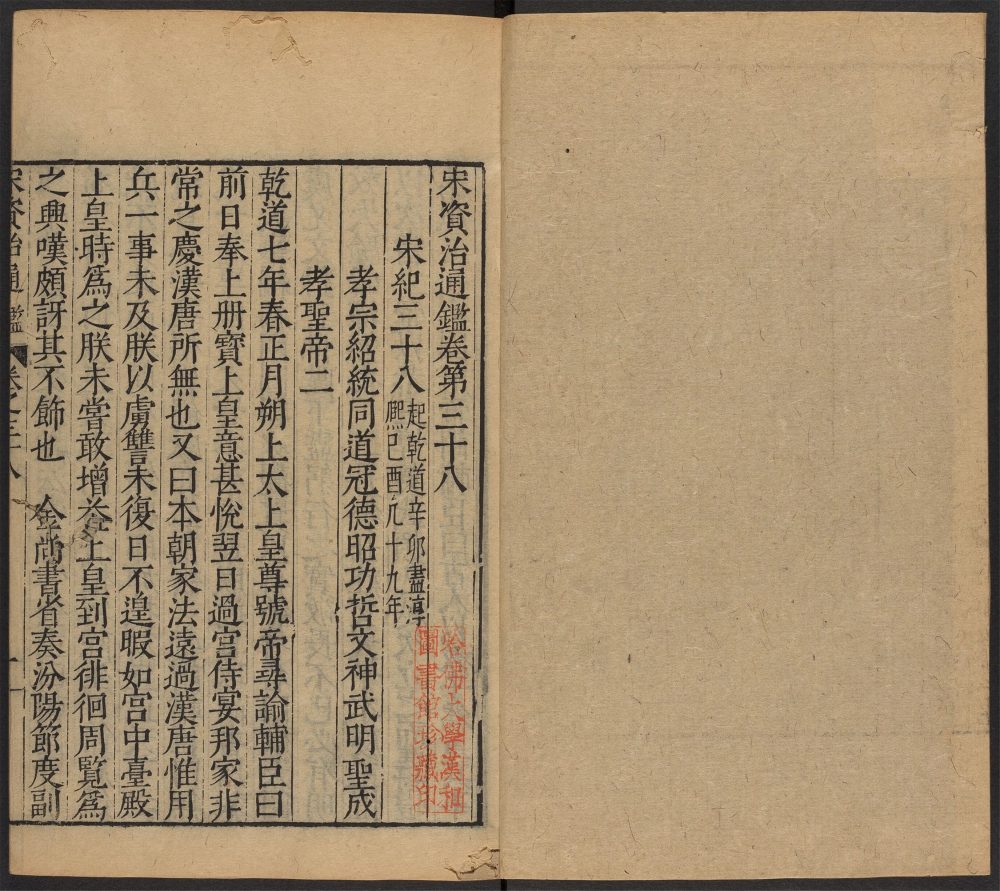 宋資治通鑑卷第三十八
宋紀三十八起乾道辛卯盡淳
熙己酉凡十九年
孝宗紹統同道冠德昭功哲文神武明聖成
孝聖帝二
乾道七年春正月朔上太上皇尊號帝尋諭輔臣曰
前日奉上册寳上皇意甚悅翌日過宮侍宴邦家非
常之慶漢唐所無也又曰本朝家法遠過漢唐惟用
兵一事未及朕以虜讐未復日不遑暇如宮中臺殿
上皇時爲之朕未嘗敢增益上皇到宮徘徊周覽爲
之興嘆頗訝其不飾也　金尚書省奏汾陽節度副
宋資治通鑑　卷之三十八　一
哈佛大學漢和
圖書館珍藏印